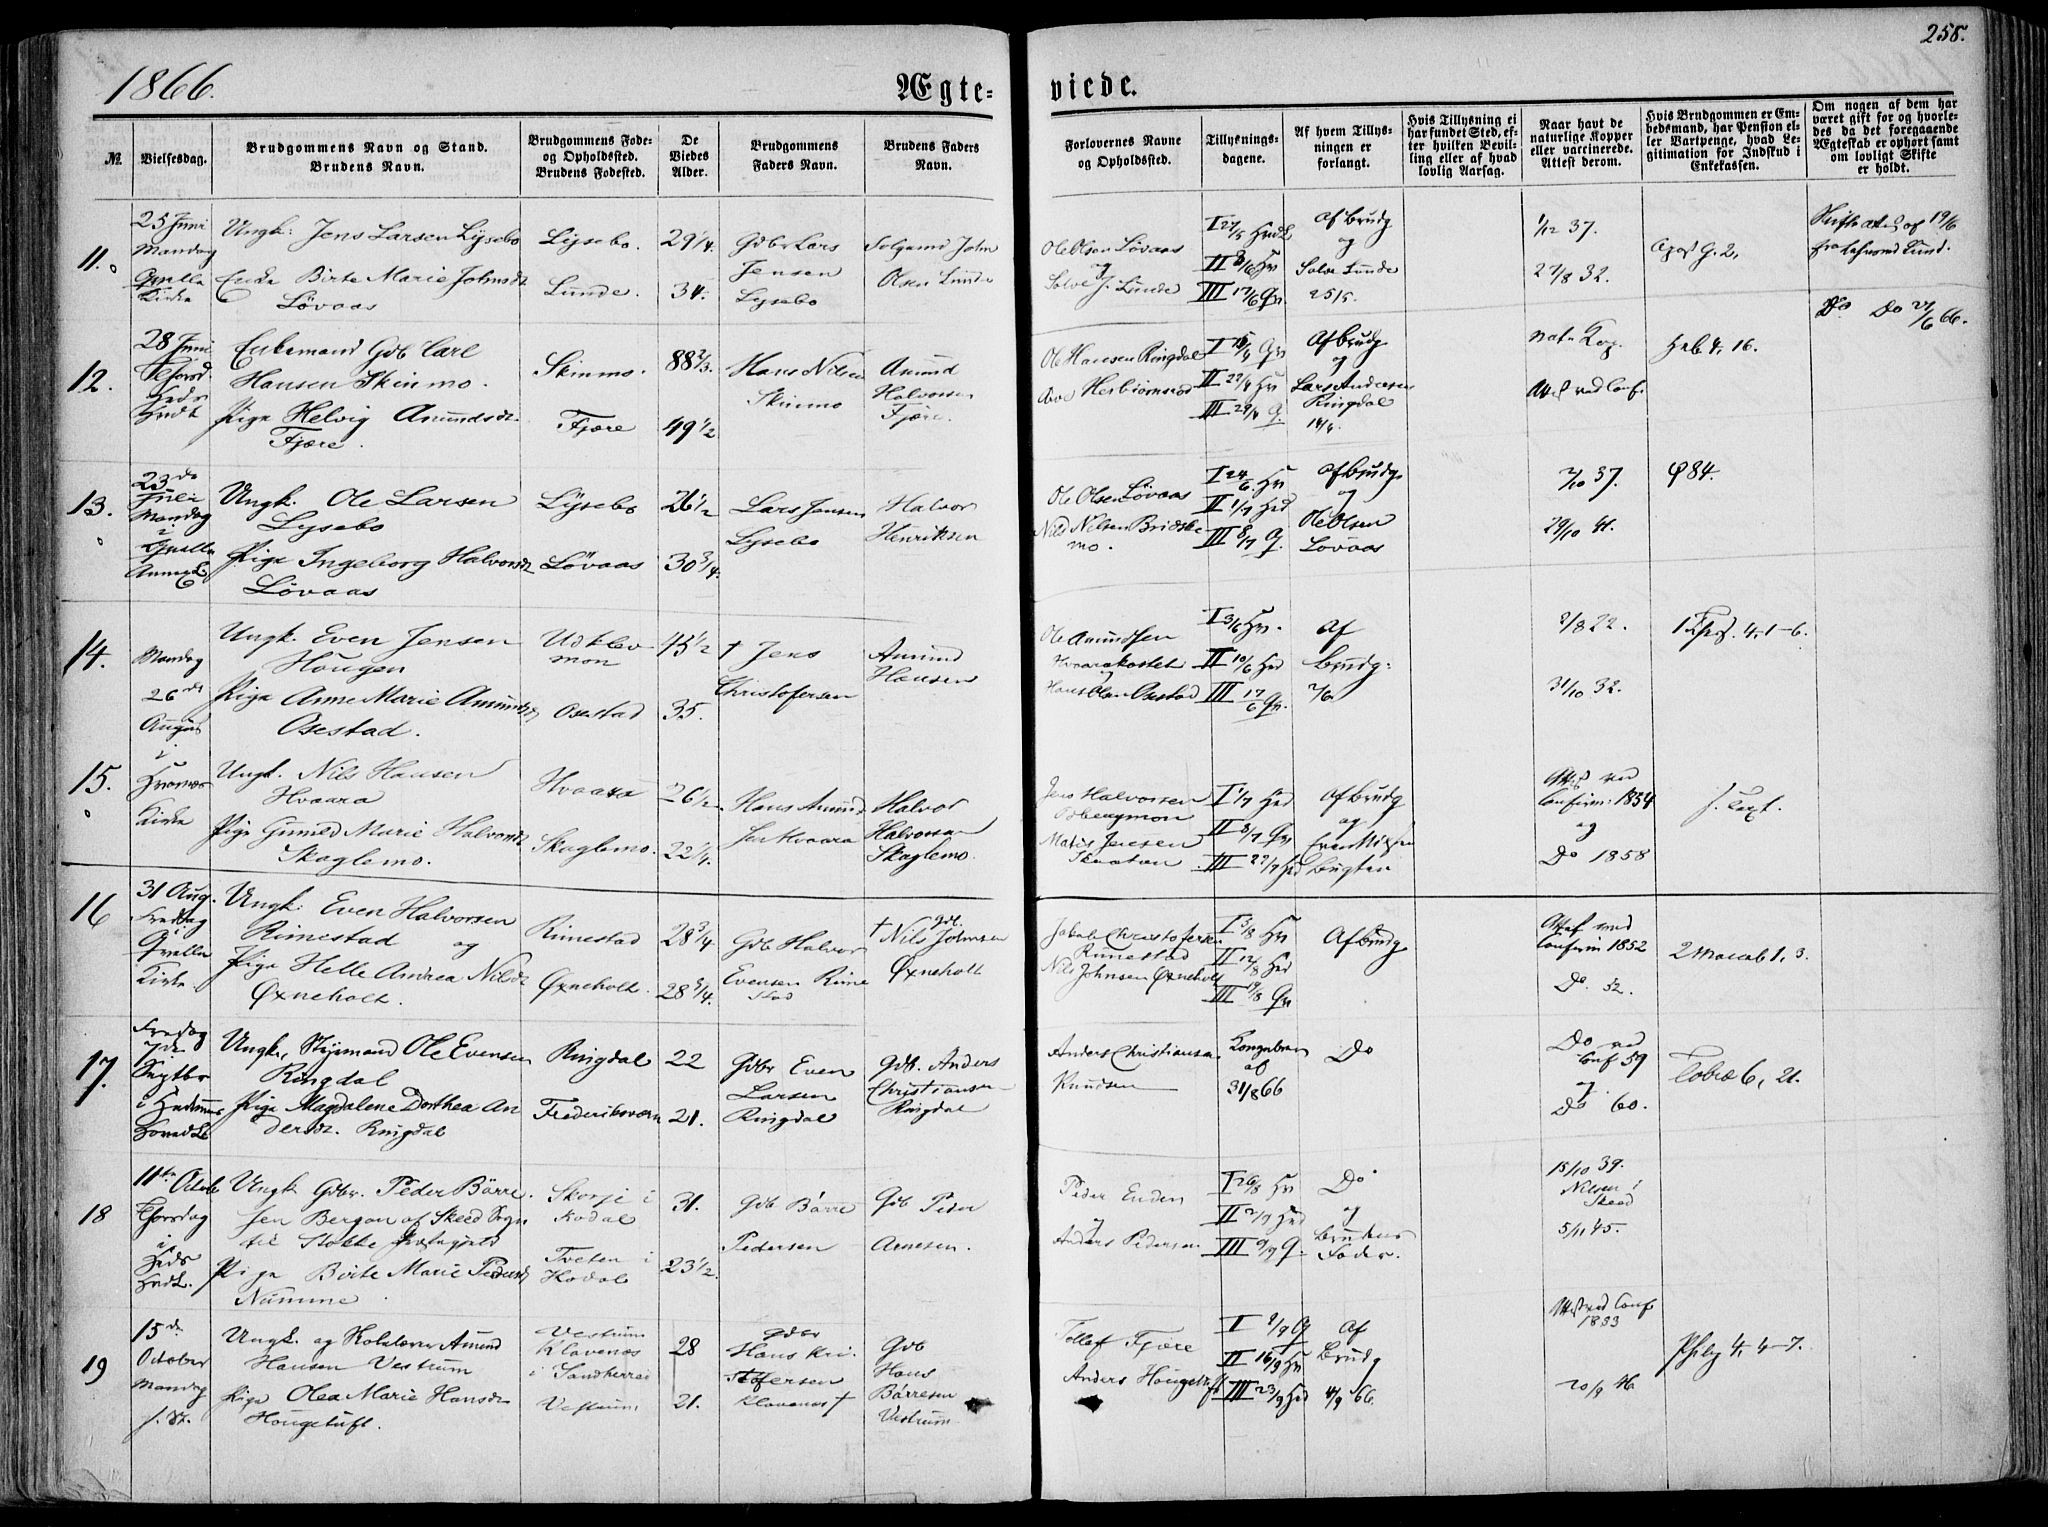 1866.
Ægte-
viede.
258.
№.
Vielsesdag.
Brudgommens Navn og Stand.
Brudens Navn.
Brudgommens Føde-
og Opholdssted.
Brudens Fødested.
De
Viedes
Alder.
Brudgommens
Faders Navn.
Brudens Faders
Navn.
Forlovernes Navne
og Opholdssted.
Tillysnings-
dagene.
Af hvem Tillys-
ningen er
forlangt.
Hvis Tillysning ei
har fundet Sted, ef-
ter hvilken Bevil-
ling eller af hvad
lovlig Aarsag.
Naar havt de
naturlige Kopper
eller vaccinerede.
Attest derom.
Hvis Brudgommen er Em-
bedsmand, har Pension el-
ler Vartpenge, hvad Le-
gitimation for Indskud i
Enkekassen.
Om nogen af dem har
været gift før og hvorle-
des da det foregaaende
Ægteskab er ophørt samt
om lovligt Skifte
er holdt.
11.
25 Juni
Mandag
Qvelle
Kirke
Ungk: Jens Larsen Lysebo
Enke Birte Marie Johnsdr
Løvaas
Lysebo.
Lunde.
29 1/4.
34.
Gdbr Lars
Jensen
Lysebo
John
Olsen Lunde
Ole Olsen Løvaas
og
Solve J. Lunde
I 27/5 Hedr
II 3/6 Hv
III 17/6 Qv.
af Brudg
og
Solve Lunde
25/5.
1/12 37.
27/8 32.
Skifteattest af 19/6
12.
28 Juni
Enkemand Gdb Carl
Hansen Skinmo.
Pige Helvig Amundsdr
Fjære.
Skinmo.
Fjære
88 2/3.
49 1/2
Hans Nilsen
Skinmo
Amund
Halvorsen
Fjære.
Ole Hansen Ringdal
I 15/4 Qv
II 22/4 Hv
III 29/4 Q.
Af Brudg.
og
Lars Andersen
Ringdal
14/4.
nat. Kop.
Attest ved Conf.
Heb 4, 16.
Do Do 27/6 66.
13.
23de
Juli
Mandag
i
Qvelle
Ungk. Ole Larsen
Lysebo
Pige Ingeborg Halvorsdr
Løvaas
Lysebo
Løvaas
26 1/2
30 3/4.
Lars Jensen
Lysebo
Halvor
Henriksen
Ole Olsen Løvaas
Nils Nilsen Bredske
mo.
I 24/6. Hv
II 1/7 Hed
III 8/7 Q.
af Brudg
og
Ole Olsen
Løvaas
2/10 37.
29/10 41.
φ 84.
14.
Mandag
26de
August
Ungk. Even Jensen
Hougen
Pige Anne Marie Amundsdr
Osestad.
Udklev
mon
Osestad
45 1/2
35.
† Jens
Christofersen
Amund
Hansen
Ole Amundsen
Hvaarakastet
Hans Olsen Osestad
I 3/6 Hv.
II 10/6 Hed
III 17/6 Qv.
Af
Brudg:
2/6
2/8 22.
31/10 32.
1 Thess. 4, 1-6.
15.
i
Hvarnes
Kirke
Ungk. Nils Hansen
Hvaara
Pige Gunild Marie Halvorsdr
Skaglemo.
Hvaara
Skaglemo.
26 1/2
22 1/4.
Hans Amund
sen Hvaara
Halvor
Halvorsen
Skaglemo.
Jens Halvorsen
Mathis Jensen
I 1/7 Hed
II 8/7 Qv
III 22/7 Hed
af Brudg
og
Even Nilsen
Bugten
Attest ved
Confirm: 1854
og
Do 1858
f. Text.
16
31 Aug.
Fredag
i
Qvelle
Kirke
Ungk: Even Halvorsen
Rimestad og
Pige Helle Andrea Nilsdr
Øxneholt.
Rimestad
Øxneholt.
28 3/4
28 3/4.
Gdb Halvor
Evensen Rime
stad
† gdb.
Nils Johnsen
Øxneholt
Jakob Christofersen
Rimestad
Nils Johnsen Øxneholt
I 5/8 Hv
II 12/8 Hed
III 19/8 Qv
Af Brudg
Attest ved
Confirm 1852
Do. 52.
2 Macab 1, 3.
17.
Fredag
7de
Septbr
i Hedrums
Hovedk.
Ungk., Styrmand Ole Evensen
Ringdal
Pige Magdalene Dorthea An
dersdr. Ringdal
Ringdal
Frederiksværn
22
21.
Gdbr Even
Larsen
Ringdal
Gdb. Anders
Christiansen
Ringdal
Anders Christiansen
Knudsen
Kongebrev
af
31/8 66
Do
Do ved
Conf 59
og
Do 60.
Tobiæ 6, 21.
18
11te Octob
Torsdag
i
Hedr
Hvdk.
Ungk Gdbr. Peder Børre
sen Bergan af Skeed Sogn
til Stokke Præstegjeld
Pige Birte Marie Pedersdr
Namme
i
Kodal
Tveten i
Kodal
31.
23 1/2.
Gdb Børre
Pedersen
Gdb Peder
Arnesen.
Peder Enden
og
Anders Pedersen
I 26/8 Hv
II 2/9 Hed
III 9/9 Q.
Do
og
Brudens
Fader.
15/10 39.
Nilsen i
Skeed
5/11 45.
19
15de
October
Mandag
f. St.
Ungk. og Amund
Hansen Vestrum
Pige Olea Marie Hansdr
Hougetuft.
Vestrum
Klavenæs
i Sandherred
Vestrum
28
21.
Gdbr
Hans Kri
stoffersen
Klavenæs †
Gdb
Hans
Børresen
Vestrum
Tollef Fjære
Anders Hougetuft
I 9/9 Q
II 16/9 Hv
III 23/9 Hed
Af
Brudg
4/9 66.
Attest ved Conf
1853
20/9 46
Philip 4, 4-7.